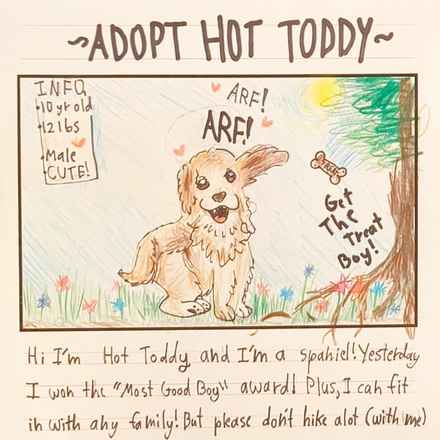 ~ADOPT HOT TODDY~
INFO
•10 yr old
•12 lbs
•Male
CUTE!
ARF!
ARF!
Get
The
Treat
Boy!
Hi I'm Hot Toddy and I'm a spaniel! Yesterday
I won the "Most Good Boy" award! Plus, I can fit
in with any family! But please don't hike alot (with me)